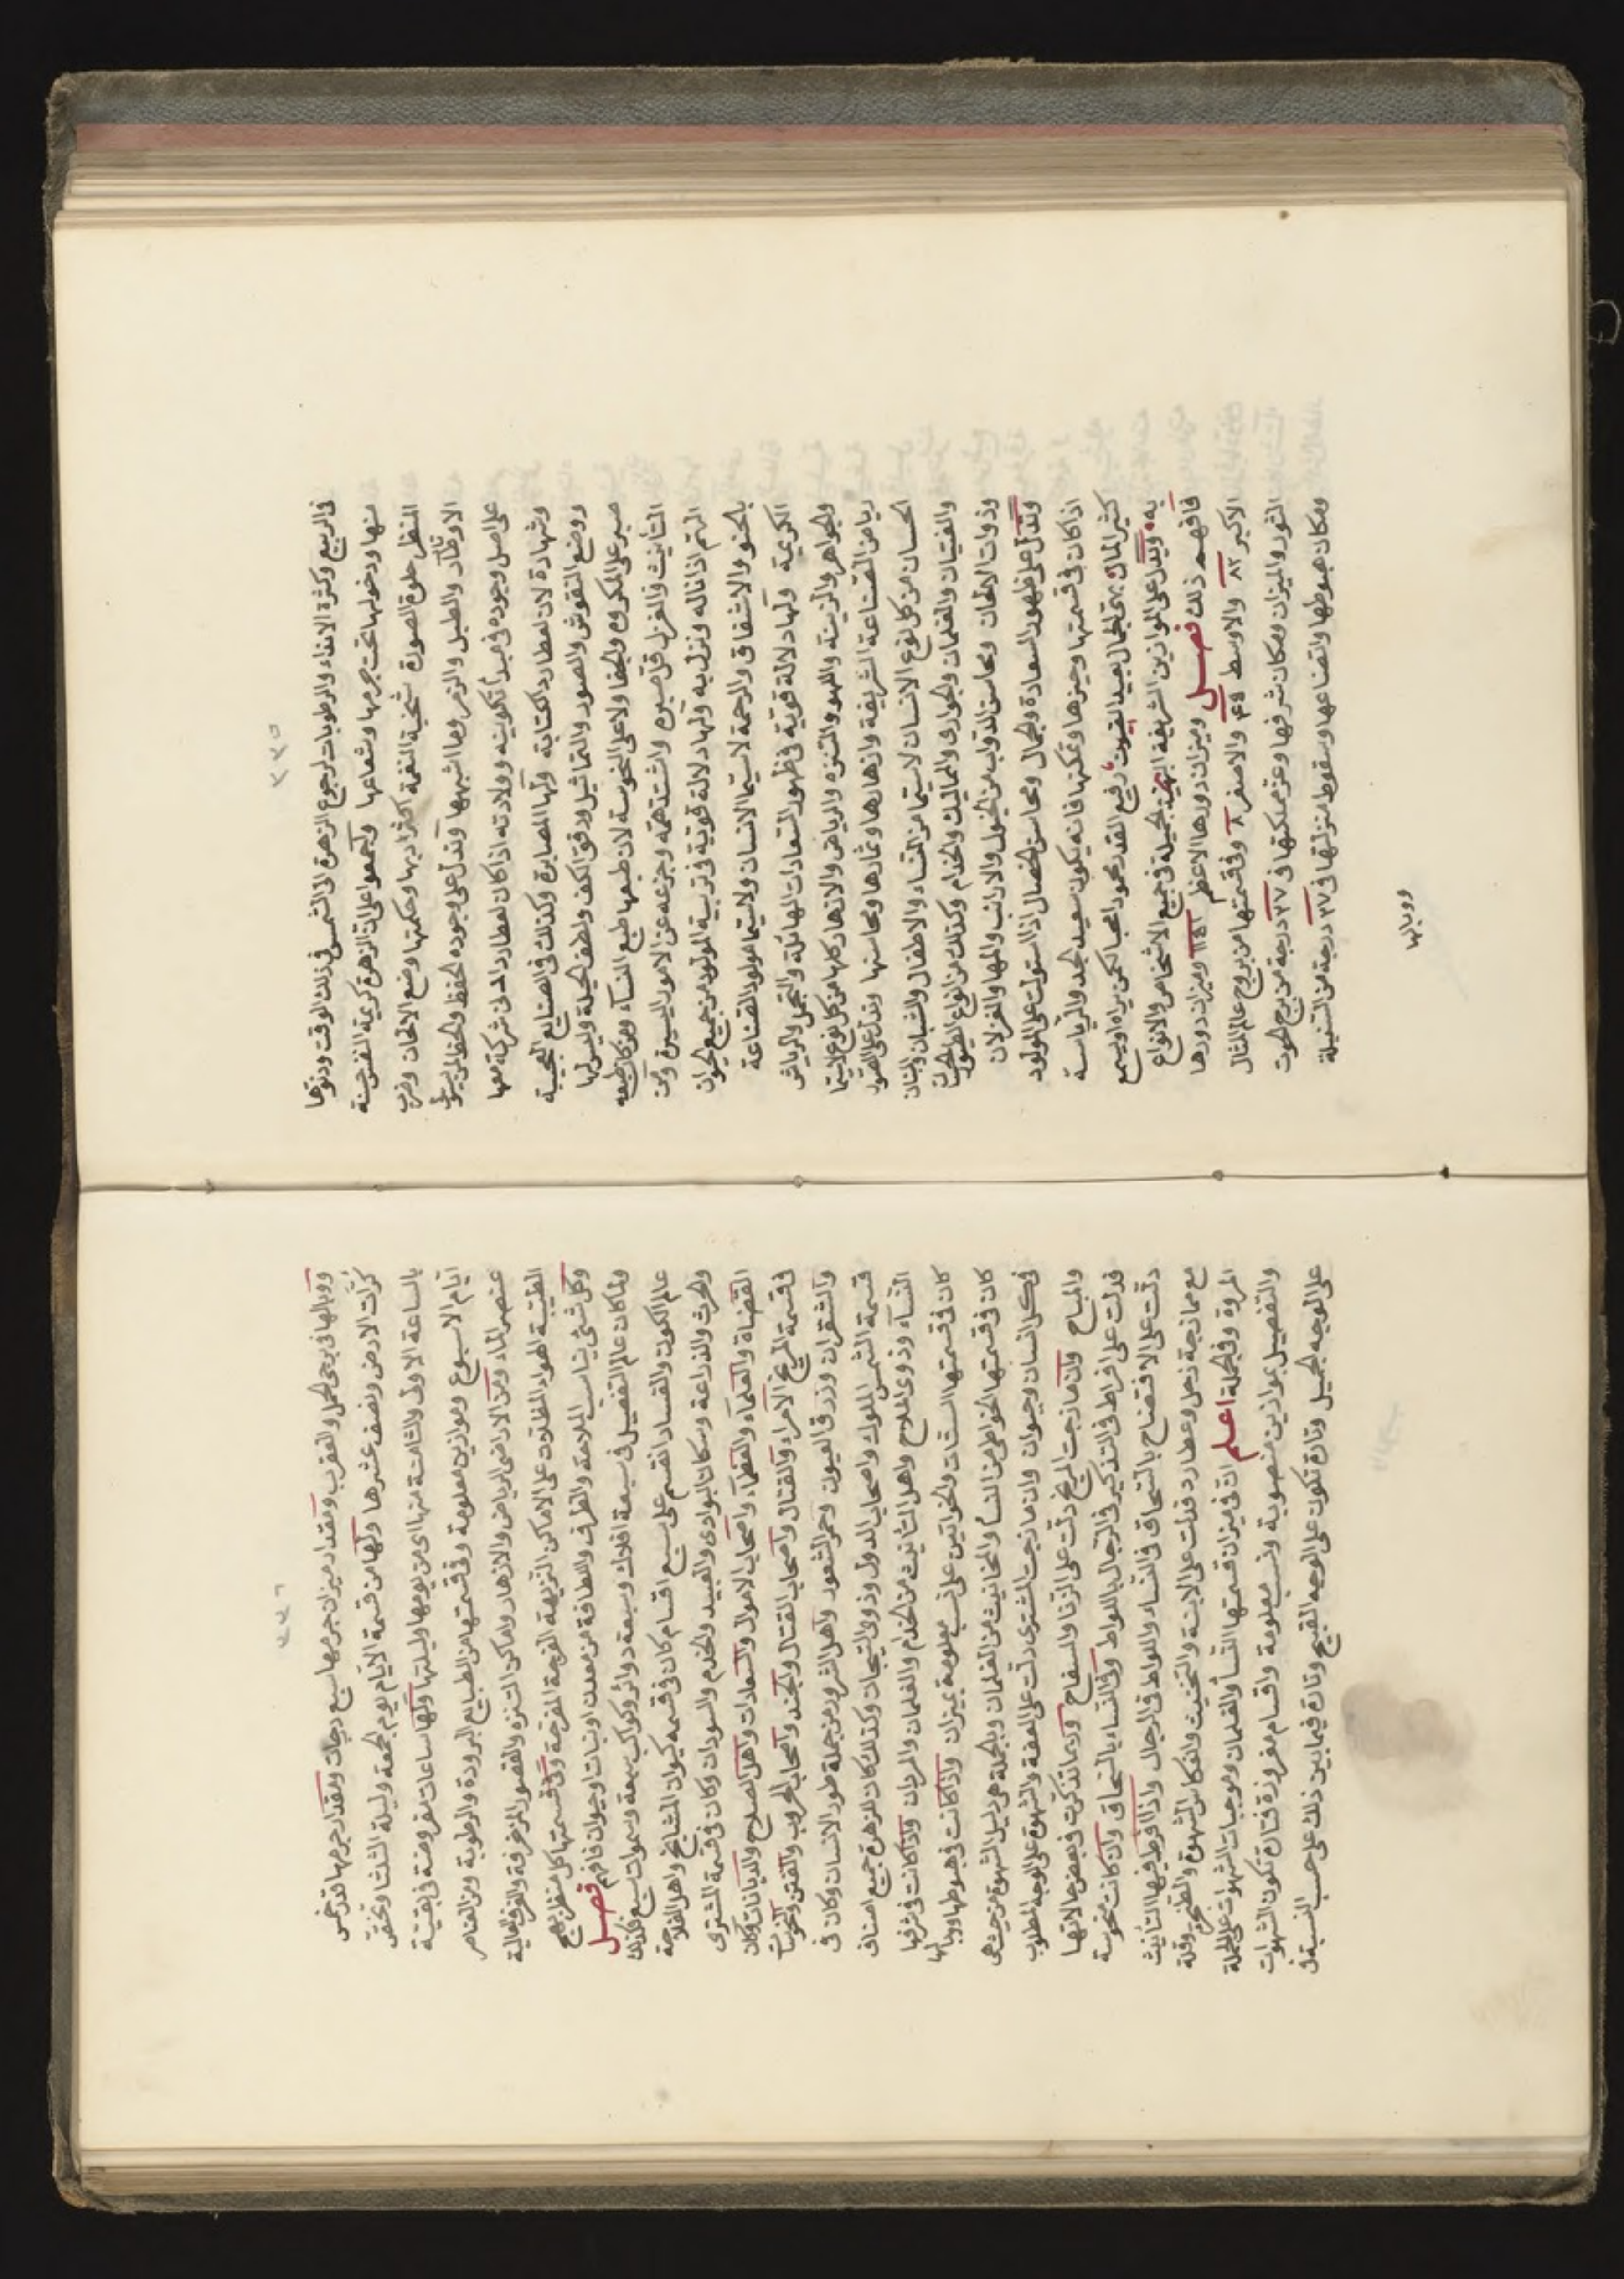 ٣٣٥
في الربيع وكثرة الانداء والرطوبات لرجوع الزهرة الى الشمس في ذلك الوقت ودنوّها
منها ودخولها تحت جرمها وشعاعها واجمعوا على ان الزهرة كريمة النفس حسنة
المنظر حلوة الصورة شجية النغمة اكثر ادبها وحكمتها وضع الالحان وضرب
الاوتار والطبل والزمر وما اشبهها وتدل على وجوده الحفظ والحفاظ
على اصل وجوده في مبدأ تكوينه وولادته اذا كان لعطارد ادنى شركة معها
وشهادة لان لعطارد الكتابة ولها المصابرة وكذلك في الصنايع العجيبة
ووضع النقوش والصور والتماثيل ودقة الكف ولطف الحيلة وليس لها
صبر على المكروه والجفا ولا على النحوسة لان طبعها طبع النساء ومن كان طبعه
التأنيث والغزل قل صبره واشتد همه وجزعه عن الامور اليسيرة ومن
الهتم اذا ناله ونزل به ولها دلالة قوية في تربية المولود من جميع الحيوان
بالحنو والاشفاق والرحمة لاسيما الانسان ولاسيما مولود القناعة
الكريمة ولها دلالة قوية في ظهور السعادات الهائلة والتجمل والرياش
والجواهر والزينة واللهو والتنزه والرياض والازهار كلها من كل نوع لاسيما
رياض الصناعة الشريفة وازهارها وثمارها ومحاسنها وتدل على النقود
الحسان من كل نوع الانسان لاسيما من النساء والاطفال والشبان والبنات
والفتيان والغلمان والجواري والمماليك والخدام وكذلك من انواع الطيور الحسان
وذوات الالحان ومحاسن الدواب من الخيول والارانب والمها والغزلان
وتدل على ظهور السعادة والجمال ومحاسن الخصال اذا استولت على المولود
اذا كان في قسمتها وحيزها وتمكنها فانه يكون سعيد الجد والرياسة
كثير المال بهي الجمال بعيد العيوب رفيع القدر محمودا محبا لكل من يراه او يسمع
به وتدل على الموازين الشريفة البهية الجميلة في جميع الاشخاص والانواع
فافهم ذلك فصل وميزان دورها الاعظم ١١٥١ وميزان دورها
الاكبر ٨٢ والاوسط ٤٥ والاصغر ٨ وفي قسمتها من بروج عالم المثال
الثور والميزان ومكان شرفها وعز تمكنها في ٢٧ درجة من برج الحوت
ومكان هبوطها واتضاعها وسقوط منزلتها في ٢٧ درجة من السنبلة
ووبالها
٣٣٦
ووبالها في برجي الحمل والعقرب ومقدار ميزان جرمها سبع درجات ومقدار جرمها قدر خمس
كرات الارض ونصف عشرها ولها من قسمة الايام يوم الجمعة وليلة الثلثا وتختص
بالساعة الاولى والثامنة منها اي من يومها وليلتها ولها ساعات مفروضة في بقية
ايام الاسبوع وموازين معلومة وفي قسمتها من الطبايع البرودة والرطوبة ومن العناصر
عنصر الماء ومن الاراضي الرياض والازهار واماكن التنزه والقصور المزخرفة والغرف العالية
الطيبة الهواء المطلات على الاماكن النزيهة الفرجة المفرحة وفي قسمتها كل منظر بهج
وكل شيء يناسب الملاحة والظرف واللطافة من معدن او نبات او حيوان فافهم فصل
ولما كان عالم التفصيل في سبعة افلاك وسبعة دوائر وكواكب سبعة وسموات سبع فكذلك
عالم الكون والفساد انقسم على سبع اقسام كان في قسمه كيوان المشايخ واهل الفلاحة
والحرث والزراعة وسكان البوادي والعبيد والخدم والسودان وكان في قسمة المشتري
القضاة والعلماء والعظماء واصحاب الاموال والسعادات واهل الصلاح والديانات وكان
في قسمة المريخ الامراء والقتال واصحاب القتال والجند واصحاب الحروب والفتن والخونات
والشقران وزرق العيون وحمر الشعور واهل الشرور من جملة طور الانسان وكان في
قسمة الشمس الملوك واصحاب الدول وذوي التيجان وكذلك كان للزهرة جميع اصناف
النساء وذوي الملاح واهل التأنيث من الخدام والغلمان والمردان واذا كانت في شرفها
كان في قسمتها الستات والخواتين على نسب معلومة بميزان واذا كانت في هبوطها ووبالها
كان في قسمتها الخواطي من النسا والمخانيث من الغلمان وبالجملة هي دليل الشهوة من حيث هي
في كل انسان وحيوان وان مازجت المشتري دلت على العفة والشهوة على الوجه المطلوب
والمباح وان مازجت المريخ دلت على الزنا والسفاح وربما تذكرت في بعض حالاتها
فدلت على افراط في التذكير في الرجال باللواط وفي النساء بالسحاق وان كانت منحوسة
دلت على الافتضاح بالسحاق في النساء واللواط في الرجال واذا افرط فيها التأنيث
مع ممازجة زحل وعطارد فدلت على الابنة والتخنيث وانعكاس الشهوة والطبع وقلة
المروة وفي الجملة اعلم ان في ميزان قسمتها النسأ والغلمان وموجبات الشهوات على الجملة
والتفصيل بموازين منصوبة ونسب معلومة واقسام مفروزة فتارة تكون الشهوات
على الوجه الجميل وتارة تكون على الوجه القبيح وتارة فيما بين ذلك على حسب النسبة في